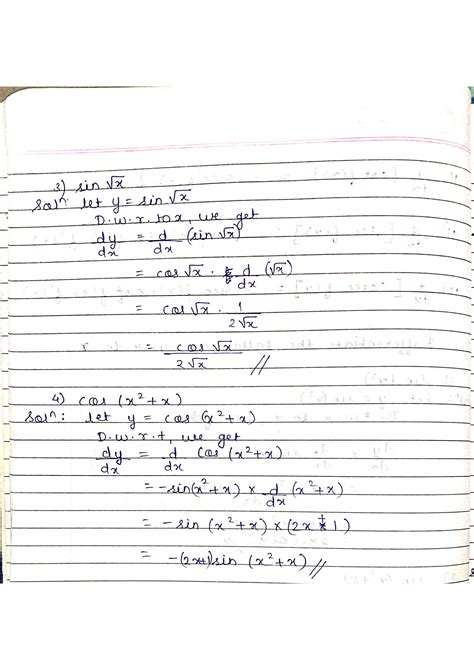 3) sin √x
Solⁿ: let y = sin √x
D.w.r. to x, we get
dy/dx = d/dx (sin √x)
= cos √x · d/dx (√x)
= cos √x · 1/2√x
= cos √x / 2√x //
4) cos (x² + x)
Solⁿ: let y = cos (x² + x)
D.w.r.t, we get
dy/dx = d/dx cos (x² + x)
= -sin(x² + x) × d/dx (x² + x)
= -sin (x² + x) × (2x + 1)
= -(2x+1) sin (x² + x) //